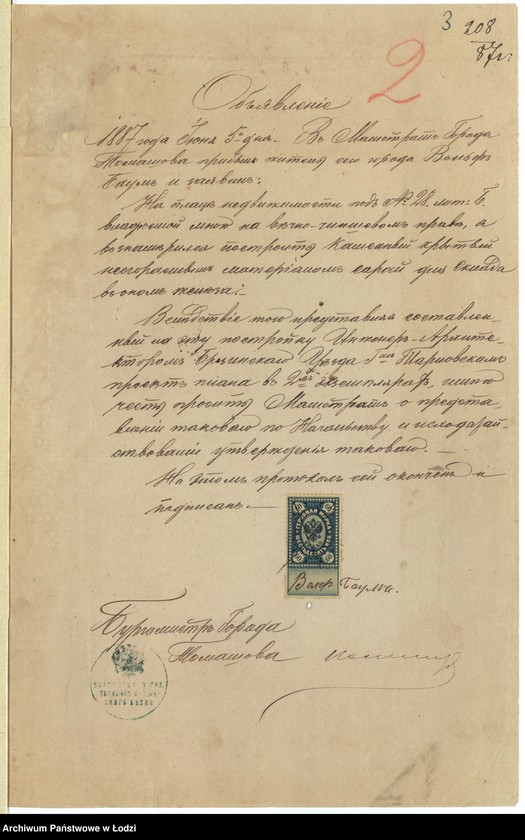 3
208
87г.
2
Объявленіе
1887 года Іюня 5 дня. Въ Магистратъ Города
Томашова прибылъ житель сего города Вольфъ
Баумъ и заявилъ:
На плацѣ недвижимости подъ № 28. лит: Б.
владѣемой мною на вѣчно-чиншевомъ правѣ, я
вознамѣрился построить каменный крытый
несгораемымъ матеріаломъ сарай для склада
въ ономъ желѣза:
Вслѣдствіе того представляя составлен-
ный на эту постройку Инженеръ-Архите-
кторомъ Брезинскаго Уѣзда Тарновскимъ
проектъ плана въ 2хъ экземплярахъ, имѣю
честь просить Магистратъ о предста-
вленіи таковаго по Начальству и исходатай-
ствованіи утвержденія таковаго.
На этомъ протоколъ сей оконченъ и
подписанъ.
60
60
ГЕРБОВАЯ МАРКА
ШЕСТЬДЕСЯТЪ КОП.
60
60
Волф Баумъ.
Бургомистръ Города
Томашова
Archiwum Państwowe w Łodzi